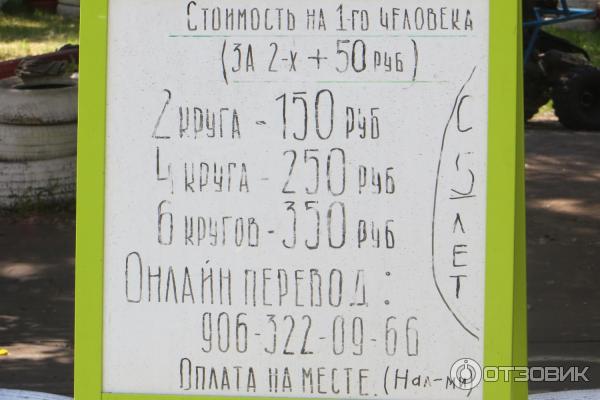 Стоимость на 1-го человека
(за 2-х + 50 руб)
2 круга - 150 руб
4 круга - 250 руб
6 кругов - 350 руб
С 5 лет
Онлайн перевод:
906-322-09-66
Оплата на месте. (Нал-ми)
ОТЗОВИК